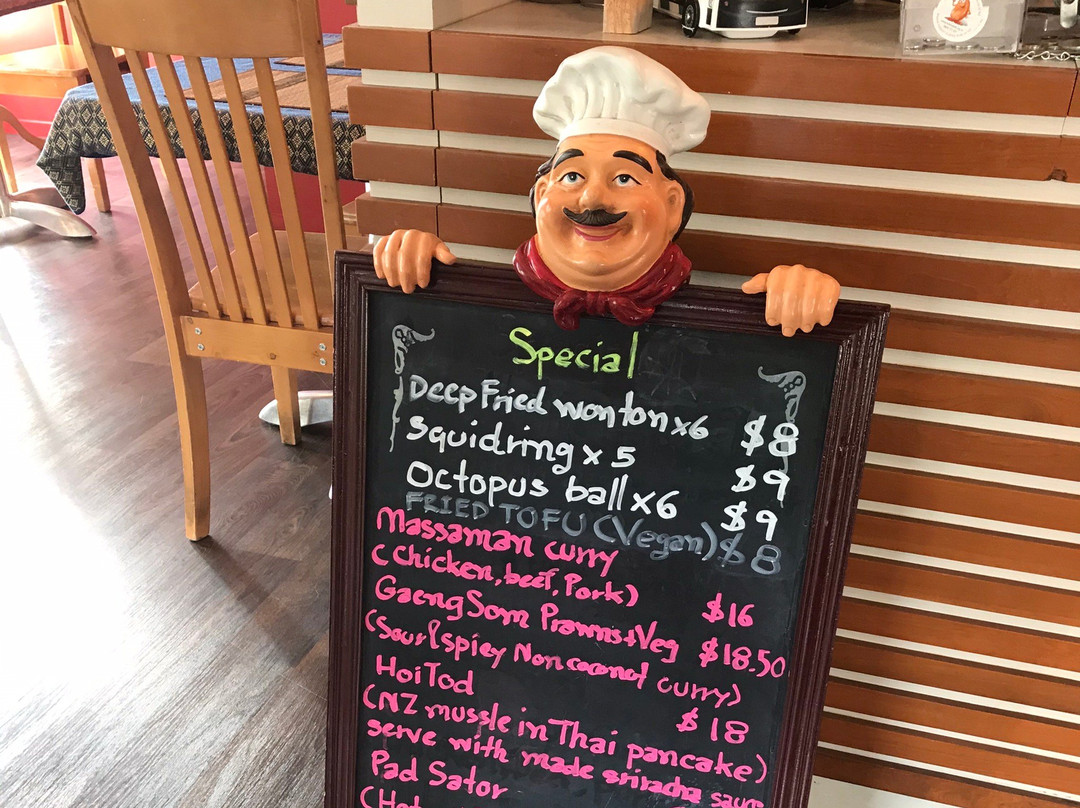 Special
Deep Fried wonton x6 $8
Squidring x 5 $9
Octopus ball x6 $9
FRIED TOFU (Vegan) $8
Massaman curry
(Chicken, beef, Pork) $16
Gaeng Som Prawns+Veg $18.50
(Sour&spicy Non coconut curry)
HoiTod $18
(NZ mussle in Thai pancake)
serve with made sriracha
Pad Sator